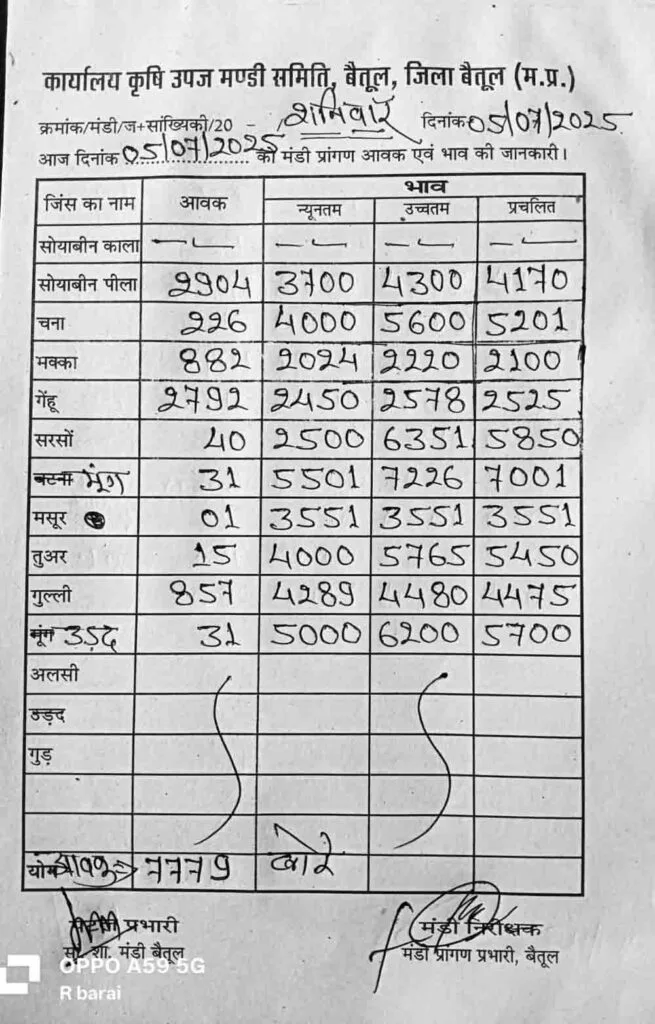 कार्यालय कृषि उपज मण्डी समिति, बैतूल, जिला बैतूल (म.प्र.)
क्रमांक/मंडी/ज+सांख्यिकी/20 - शनिवार दिनांक 05/07/2025
आज दिनांक 05/07/2025 की मंडी प्रांगण आवक एवं भाव की जानकारी।
जिंस का नाम आवक भाव
न्यूनतम उच्चतम प्रचलित
सोयाबीन काला -- -- -- --
सोयाबीन पीला 2904 3700 4300 4170
चना 226 4000 5600 5201
मक्का 882 2024 2220 2100
गेंहू 2792 2450 2578 2525
सरसों 40 2500 6351 5850
बटना मूंग 31 5501 7226 7001
मसूर 01 3551 3551 3551
तुअर 15 4000 5765 5450
गुल्ली 857 4289 4480 4475
मूंग उड़द 31 5000 6200 5700
अलसी
उड़द
गुड़
योग आवक 7779 बोरे
प्रभारी मंडी निरीक्षक
शा. मंडी बैतूल मंडी प्रांगण प्रभारी, बैतूल
OPPO A59 5G
R barai